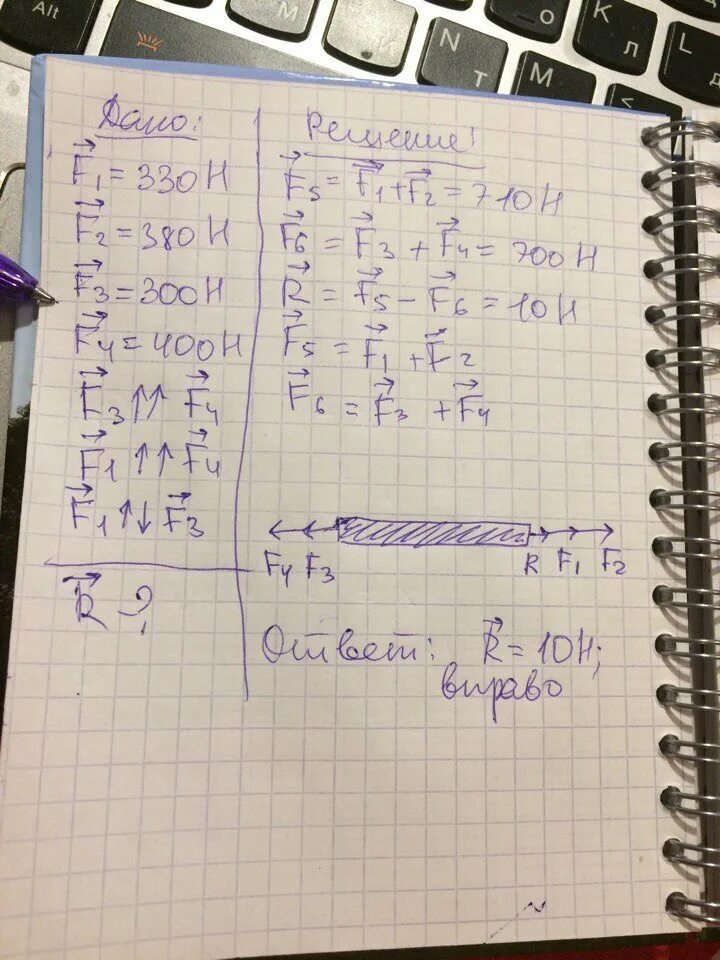 Alt
М
И
N Т
О
К Л
M
<
L Д
Дано:
F₁ = 330 Н
F₂ = 380 Н
F₃ = 300 Н
F₄ = 400 Н
F₃ ↑↑ F₄
F₁ ↑↑ F₄
F₁ ↑↓ F₃
R - ?
Решение!
F₅ = F₁ + F₂ = 710 Н
F₆ = F₃ + F₄ = 700 Н
R = F₅ - F₆ = 10 Н
F₅ = F₁ + F₂
F₆ = F₃ + F₄
F₄ F₃ R F₁ F₂
Ответ: R = 10 Н;
вправо